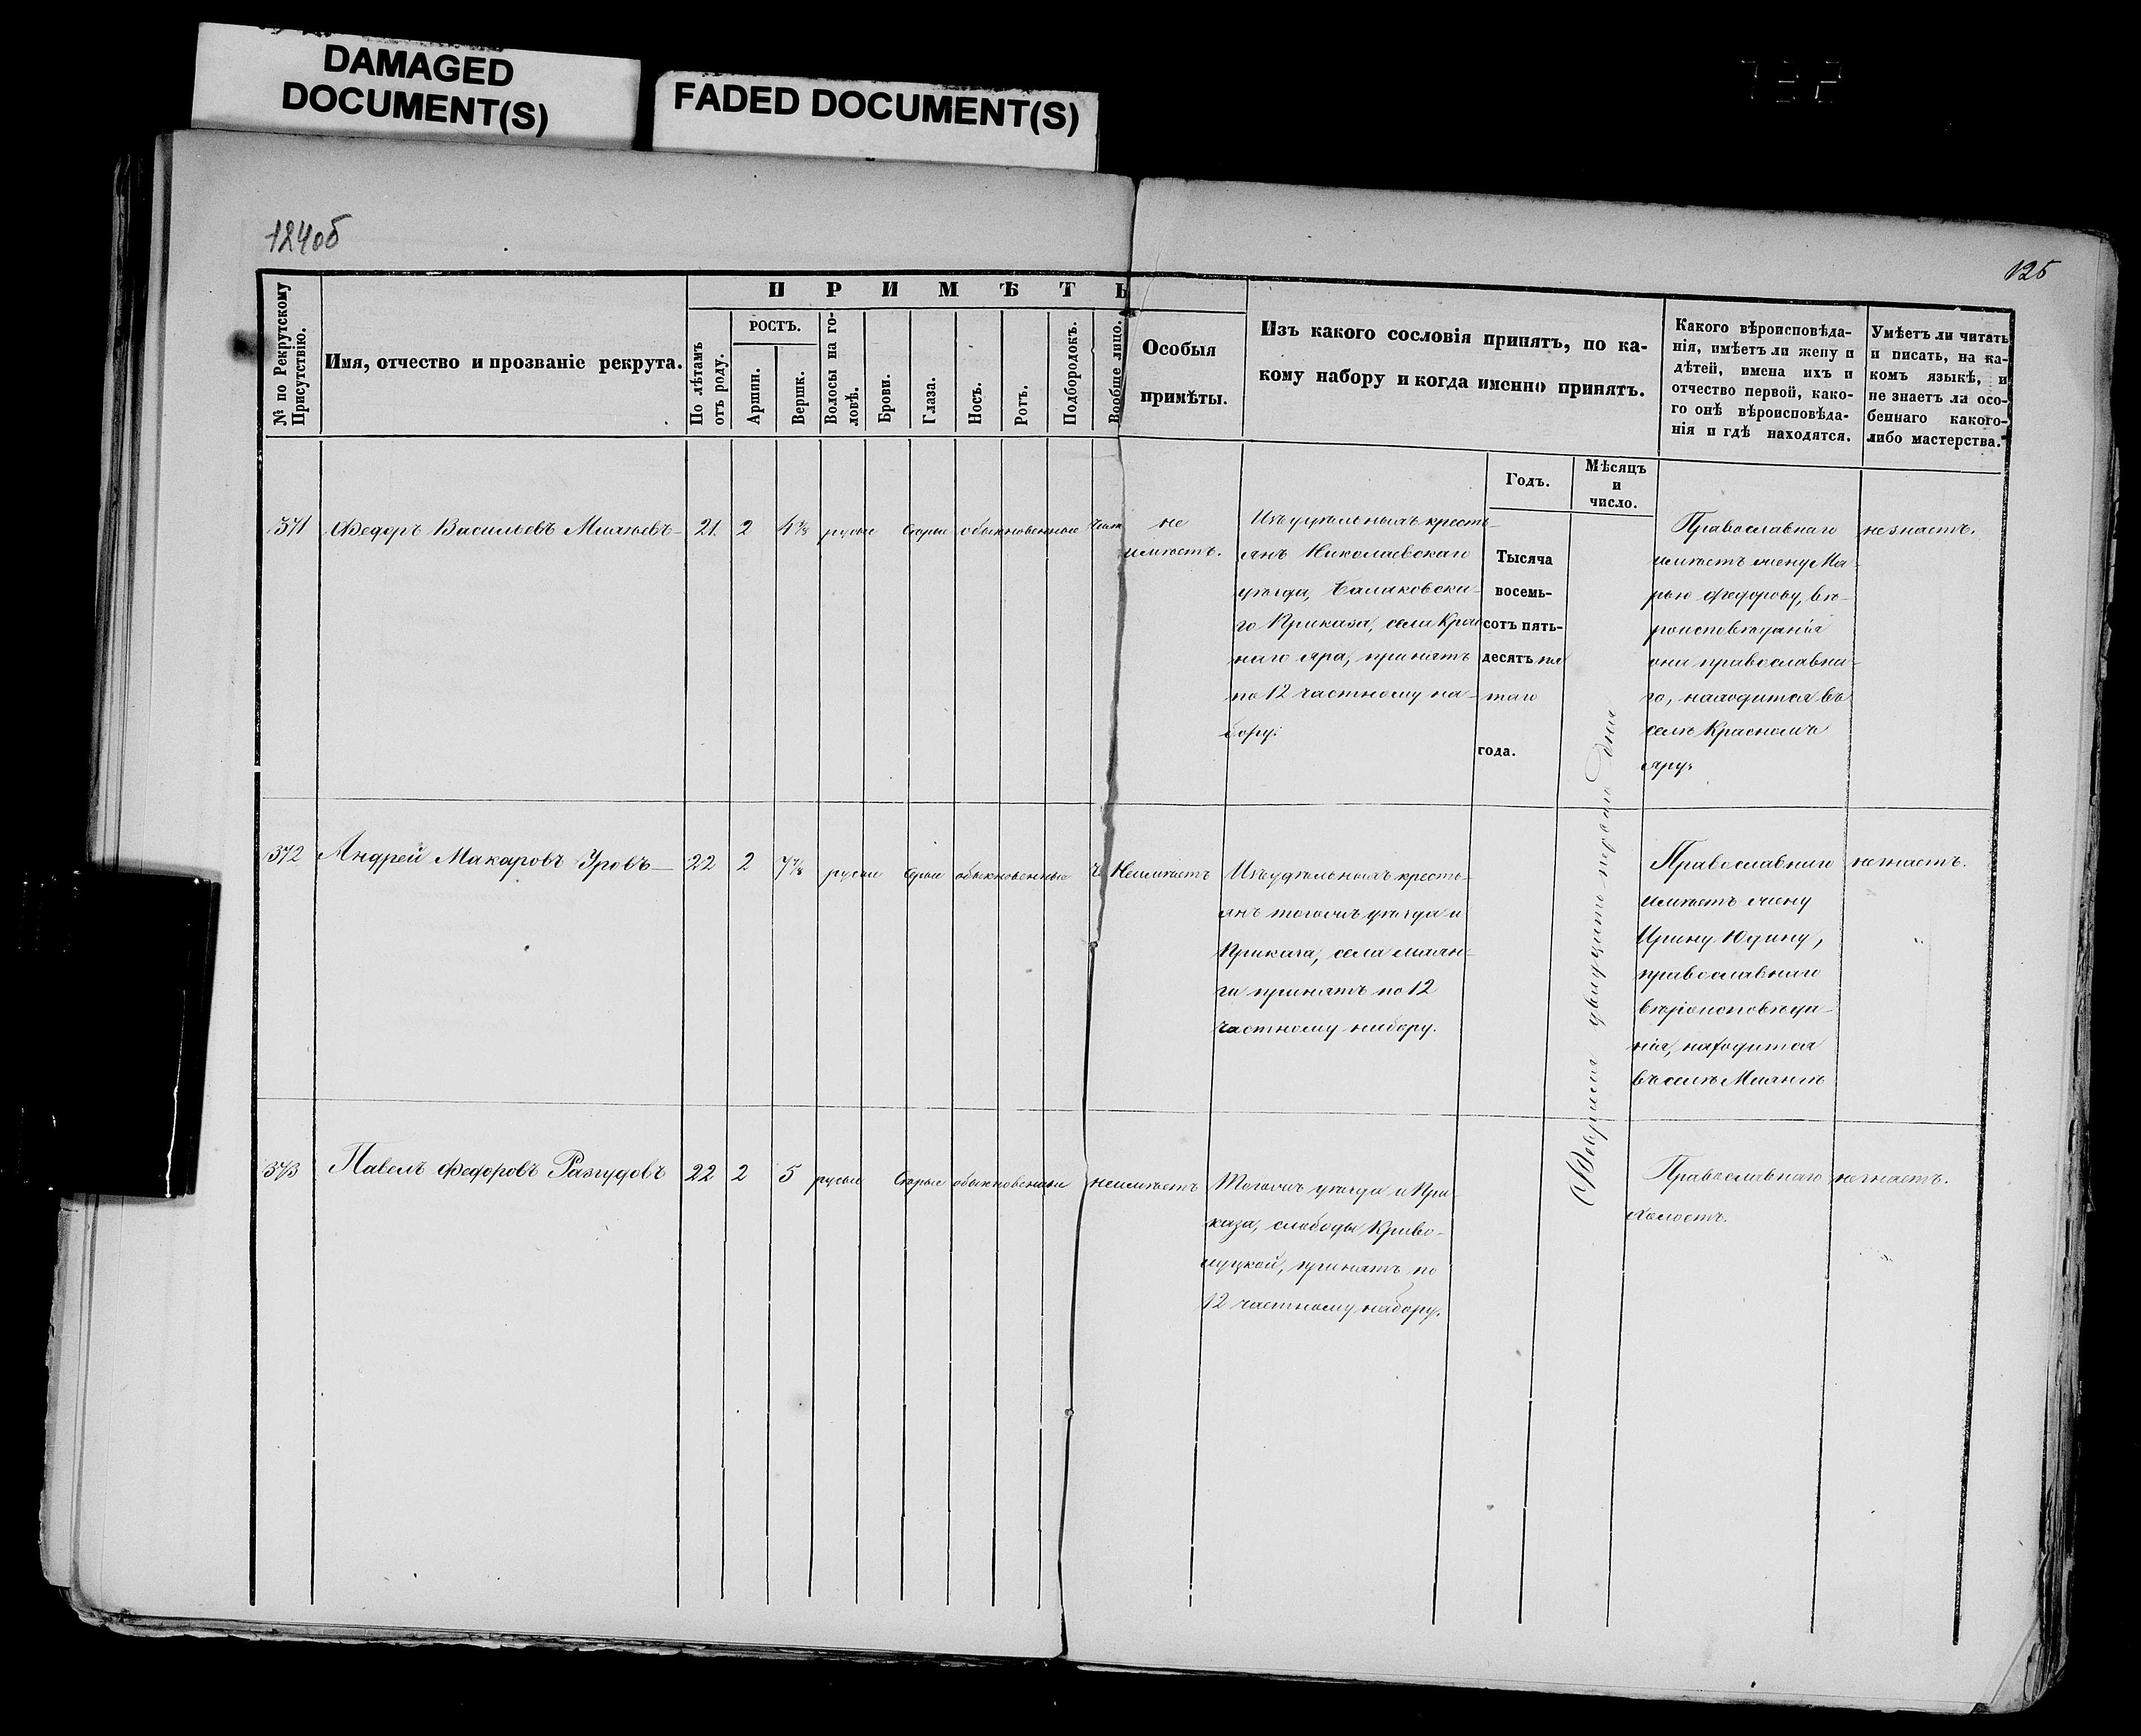 DAMAGED
DOCUMENT(S)
FADED DOCUMENT(S)
124об
125
№ по Рекрутскому
Присутствію.
Имя, отчество и прозваніе рекрута.
ПРИМѢТЫ
По лѣтамъ
отъ роду.
РОСТЪ.
Аршин.
Вершк.
Волосы на го-
ловѣ.
Брови.
Глаза.
Носъ.
Ротъ.
Подбородокъ.
Вообще лицо.
Особыя
примѣты.
Изъ какого сословія принятъ, по ка-
кому набору и когда именно принятъ.
Годъ.
Мѣсяцъ
и
число.
Какого вѣроисповѣда-
нія, имѣетъ ли жену и
дѣтей, имена ихъ и
отчество первой, како-
го онѣ вѣроисповѣда-
нія и гдѣ находятся.
Умѣетъ ли читать
и писать, на ка-
комъ языкѣ, и
не знаетъ ли осо-
беннаго какого-
либо мастерства.
371 Федоръ Васильевъ 21. 2 4 русые Сѣрые обыкновенные
не
имѣетъ.
Изъ удѣльныхъ кресть
янъ Николаевскаго
уѣзда, Балаковска-
го Приказа, села Крас
наго Яра, принятъ
по 12 частному на-
бору.
Тысяча
восемь-
сотъ пять-
десятъ пя
таго
года.
Февраля двадцать перваго дня
Православнаго
имѣетъ жену Ма-
рью Федорову, вѣ-
роисповѣданія
она православна-
го, находится въ
селѣ Красномъ
Яру.
не знаетъ.
372 Андрей Макаровъ Уровъ 22 2 7 7/8 русые Сѣрые обыкновенные ч Неимѣетъ
Изъ удѣльныхъ кресть-
янъ тогожъ уѣзда и
Приказа, села Маян-
ги принятъ по 12
частному набору.
Православнаго
имѣетъ жену
Ирину Юдину,
православнаго
вѣроисповѣда-
нія, находится
въ селѣ Маянгѣ
не знаетъ.
373 Павелъ Федоровъ 22 2 5 русые Сѣрые обыкновенные неимѣетъ
Тогожъ уѣзда и При-
каза, слободы Криво-
луцкой, принятъ по
12 частному набору.
Православнаго
холостъ.
не знаетъ.